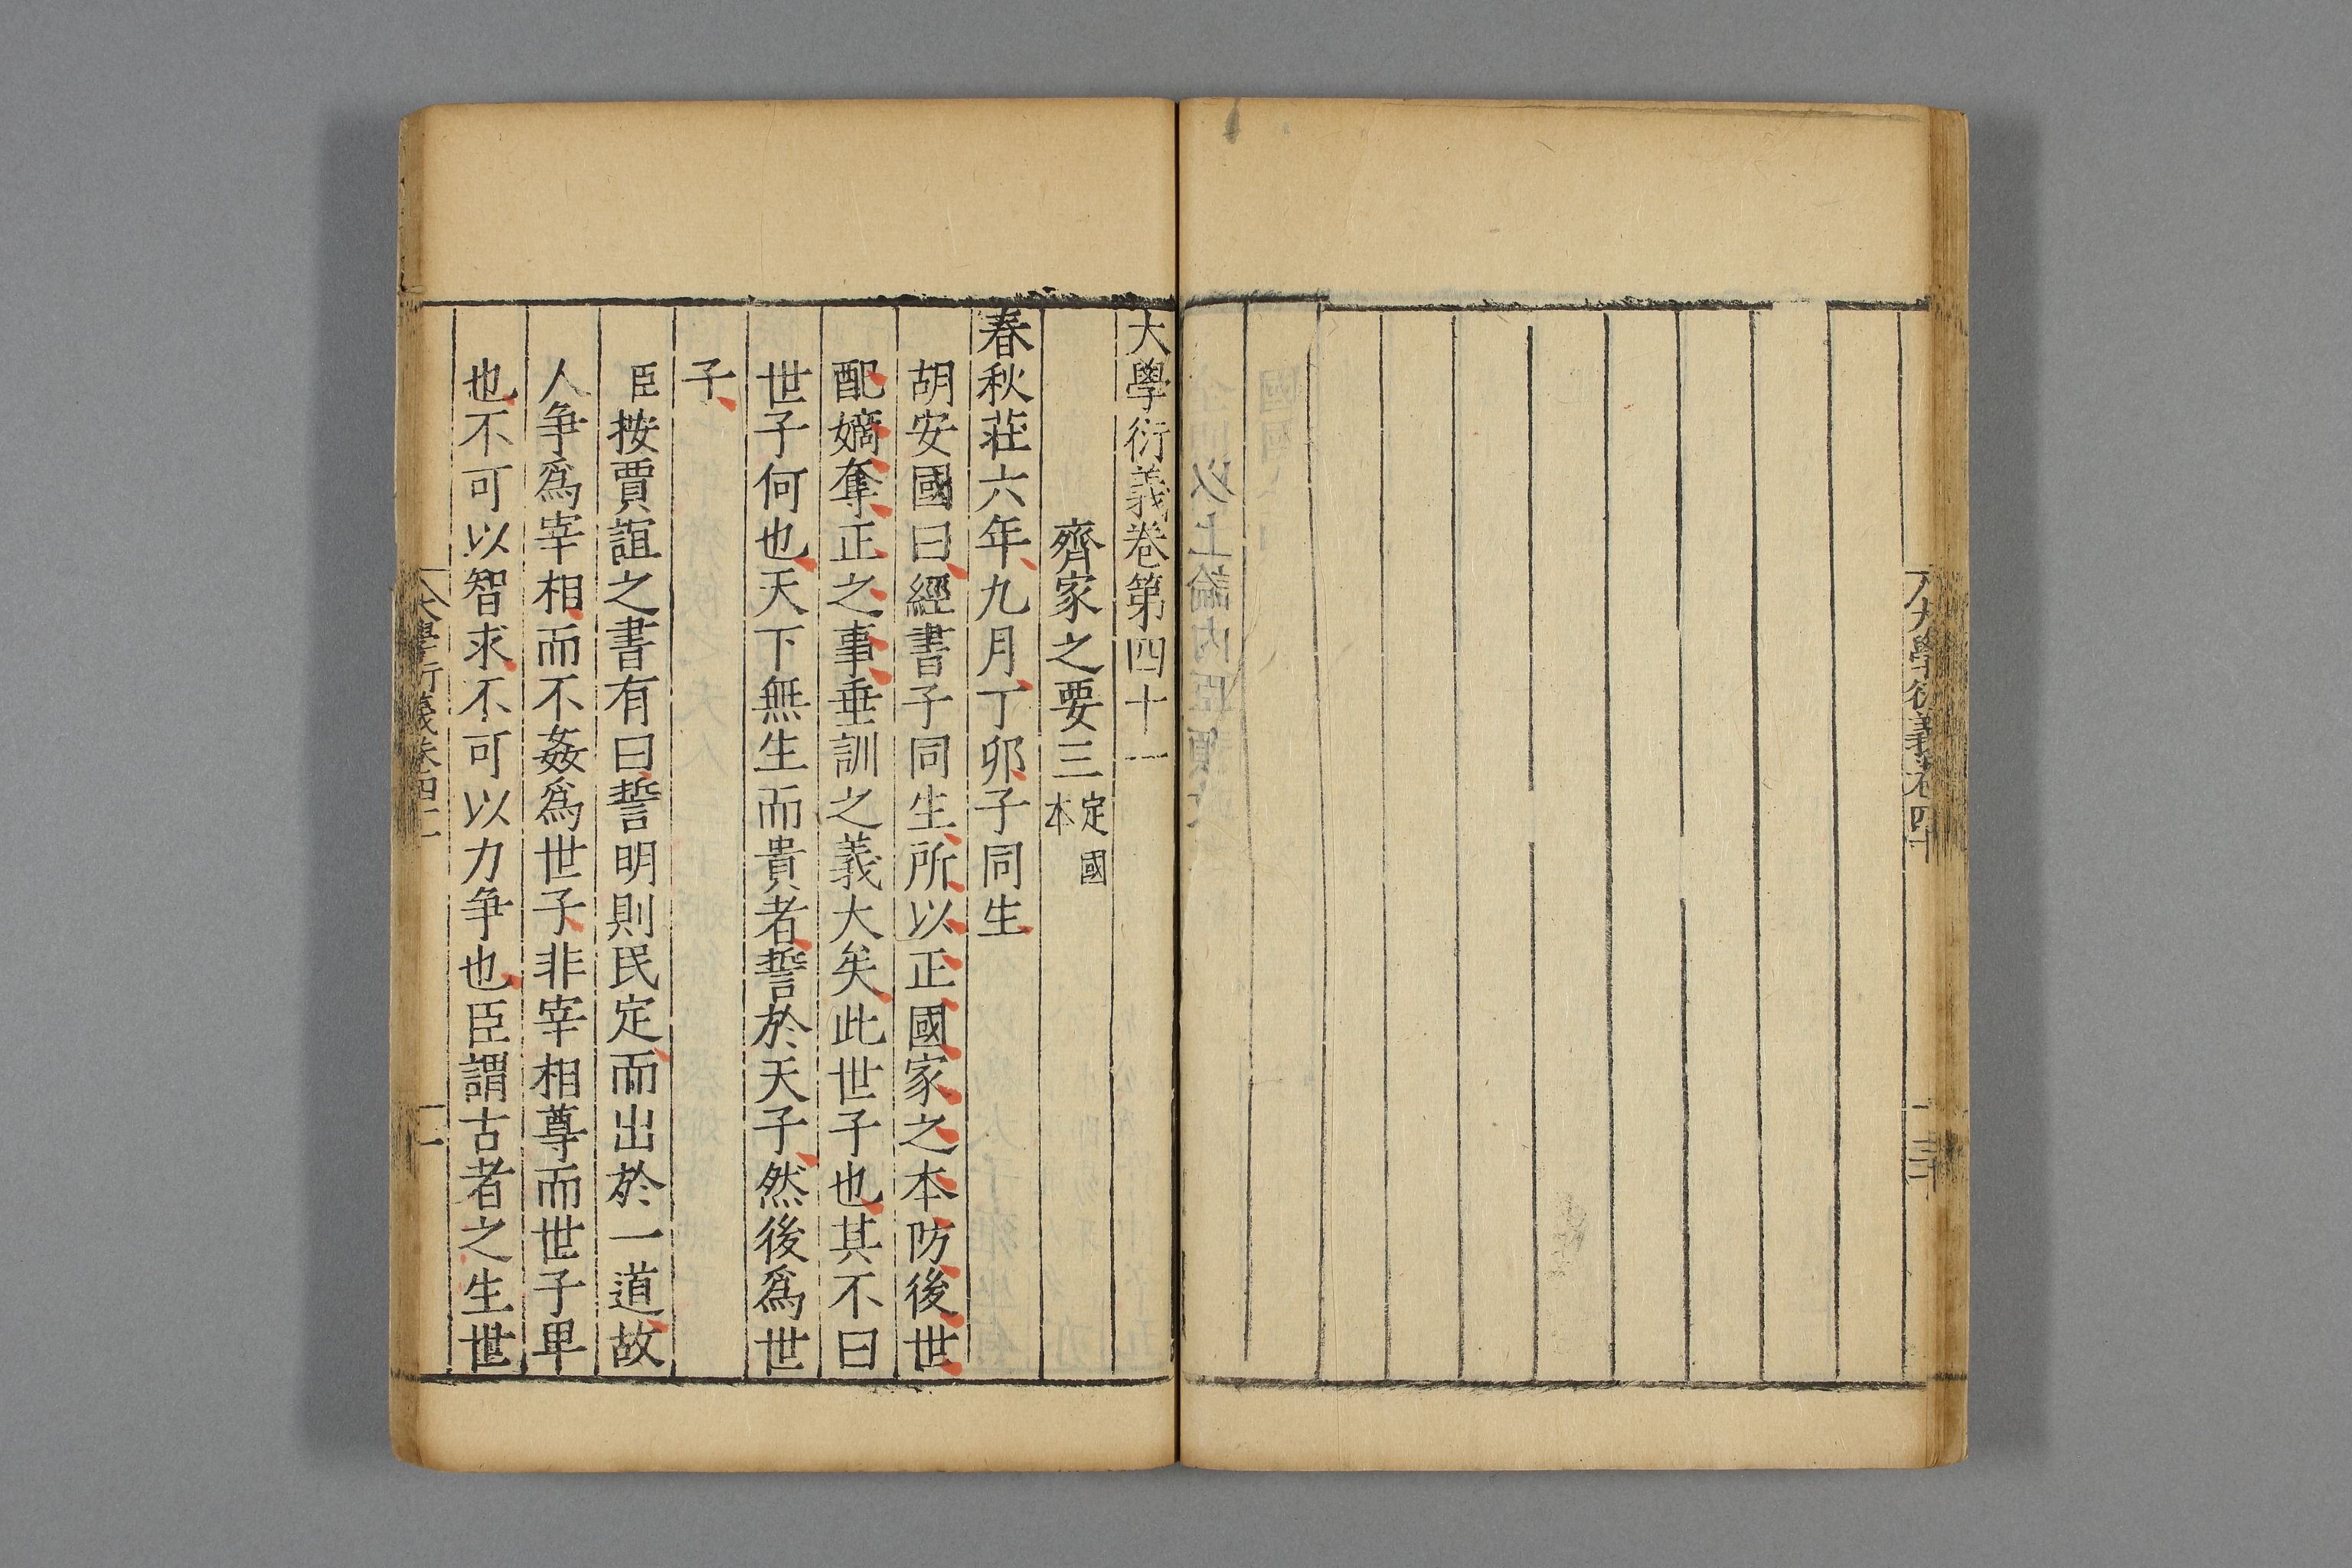 大學衍義卷第四十一
齊家之要三 定國本
春秋莊六年九月丁卯子同生
胡安國曰經書子同生所以正國家之本防後世
配嫡奪正之事垂訓之義大矣此世子也其不曰
世子何也天下無生而貴者誓於天子然後爲世
子
臣按賈誼之書有曰誓明則民定而出於一道故
人爭爲宰相而不姦爲世子非宰相尊而世子卑
也不可以智求不可以力爭也臣謂古者之生世